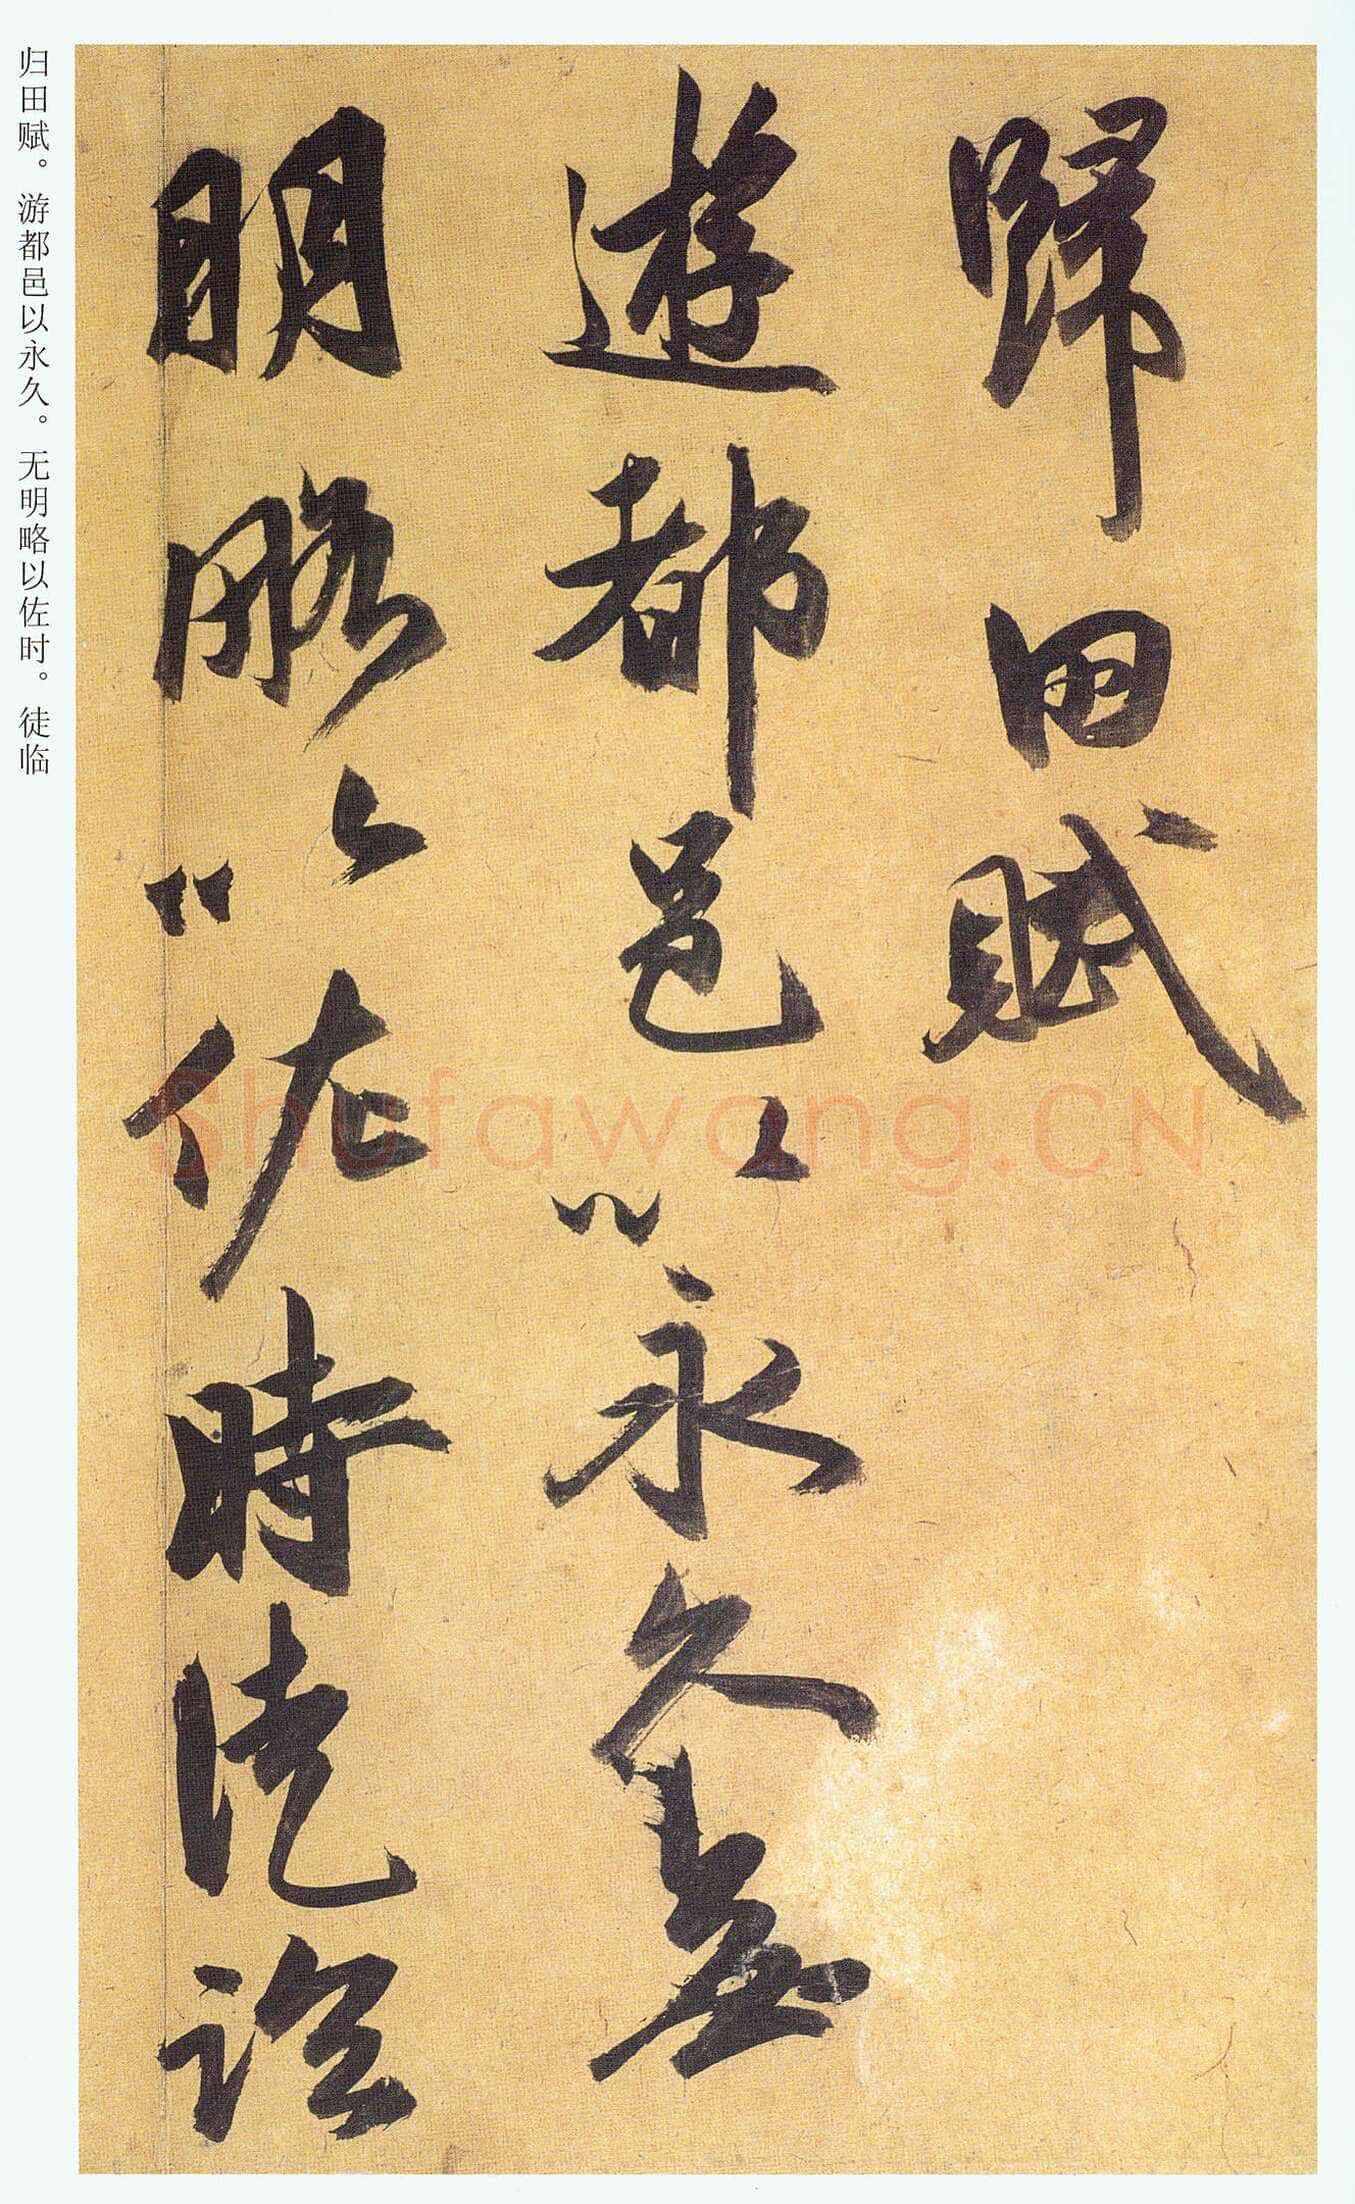 歸田賦
遊都邑以永久無
明略以佐時徒臨
归田赋。游都邑以永久。无明略以佐时。徒临
Shufawang.CN